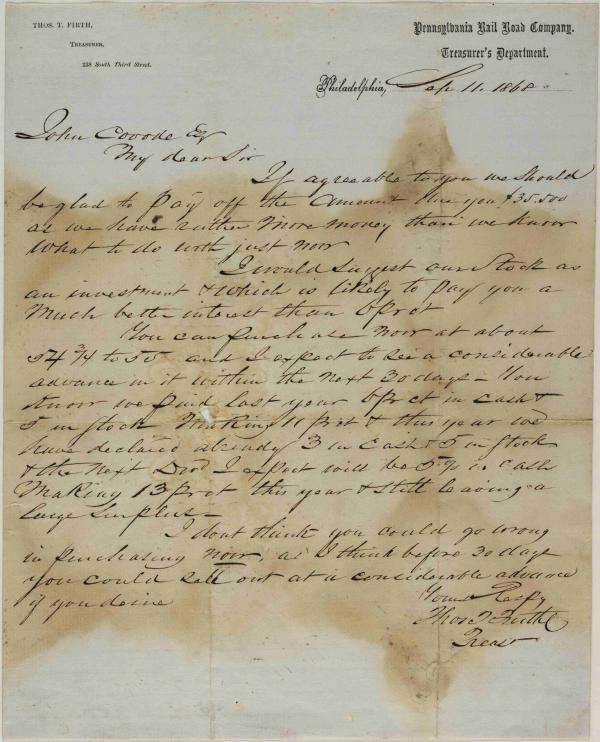 THOS. T. FIRTH,
TREASURER,
238 South Third Street.
Pennsylvania Rail Road Company.
Treasurer's Department.
Philadelphia, Sep 11. 1868
John Covode Esq
My dear Sir
If agreeable to you we should
be glad to pay off the amount due you $35.500
as we have rather more money than we know
what to do with just now
I would suggest our Stock as
an investment & which is likely to pay you a
much better interest than 6 prct
You can purchase now at about
54 3/4 to 55 and I expect to see a considerable
advance in it within the next 30 days - You
know we paid last year 6 prct in cash &
5 in stock making 11 prct & this year we
have declared already 3 in cash & 5 in stock
& the next Divd I expect will be 5% in cash
making 13 prct this year & still leaving a
large surplus -
I dont think you could go wrong
in purchasing now, as I think before 30 days
you could sell out at a considerable advance
if you desire
Yours Respy
Thos T Firth
Treasr